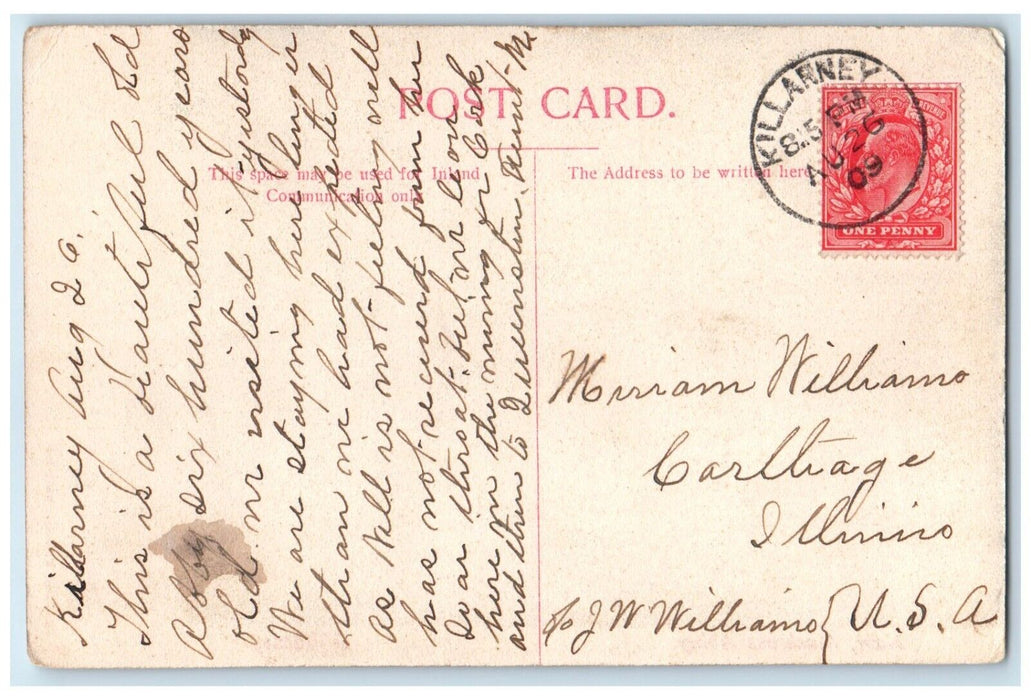 POST CARD.
This space may be used for Inland
Communication only
The Address to be written here
KILLARNEY
8.15 PM
AU 26
09
REVENUE
ONE PENNY
Killarney Aug 26.
This is a beautiful old
Abby six hundred years
old we visited it yesterday
We are staying here longer
than we had expected
as Will is not feeling well
has not recovered from his
sore throat but we leave
here in the morning for Cork
and then to Queenstown. Aunt M.
Miriam Williams
Carthage
Illinois
c/o J W Williams { U. S. A